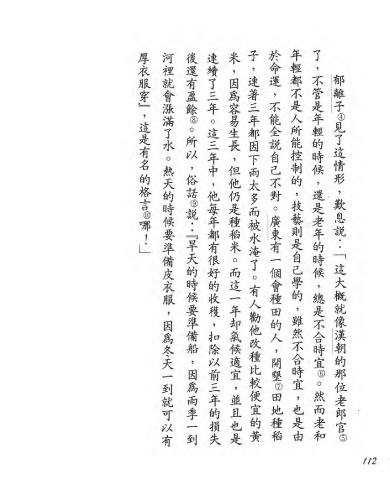 郁離子④見了這情形，歎息說：「這大概就像漢朝的那位老郎官⑤
了，不管是年輕的時候，還是老年的時候，總是不合時宜⑥。然而老和
年輕都不是人所能控制的，技藝則是自己學的，雖然不合時宜，也是由
於命運，不能全說自己不對。廣東有一個會種田的人，開墾⑦田地種稻
子，連著三年都因下雨太多而被水淹了。有人勸他改種比較便宜的黃
米，因為容易生長，但他仍是種稻米。而這一年卻氣候適宜，並且也是
連續了三年。這三年中，他每年都有很好的收穫，扣除以前三年的損失
後還有盈餘⑧。所以，俗話⑨說：『旱天的時候要準備船，因為雨季一到
河裡就會漲滿了水。熱天的時候要準備皮衣服，因為冬天一到就可以有
厚衣服穿』，這是有名的格言⑩哪！」
112